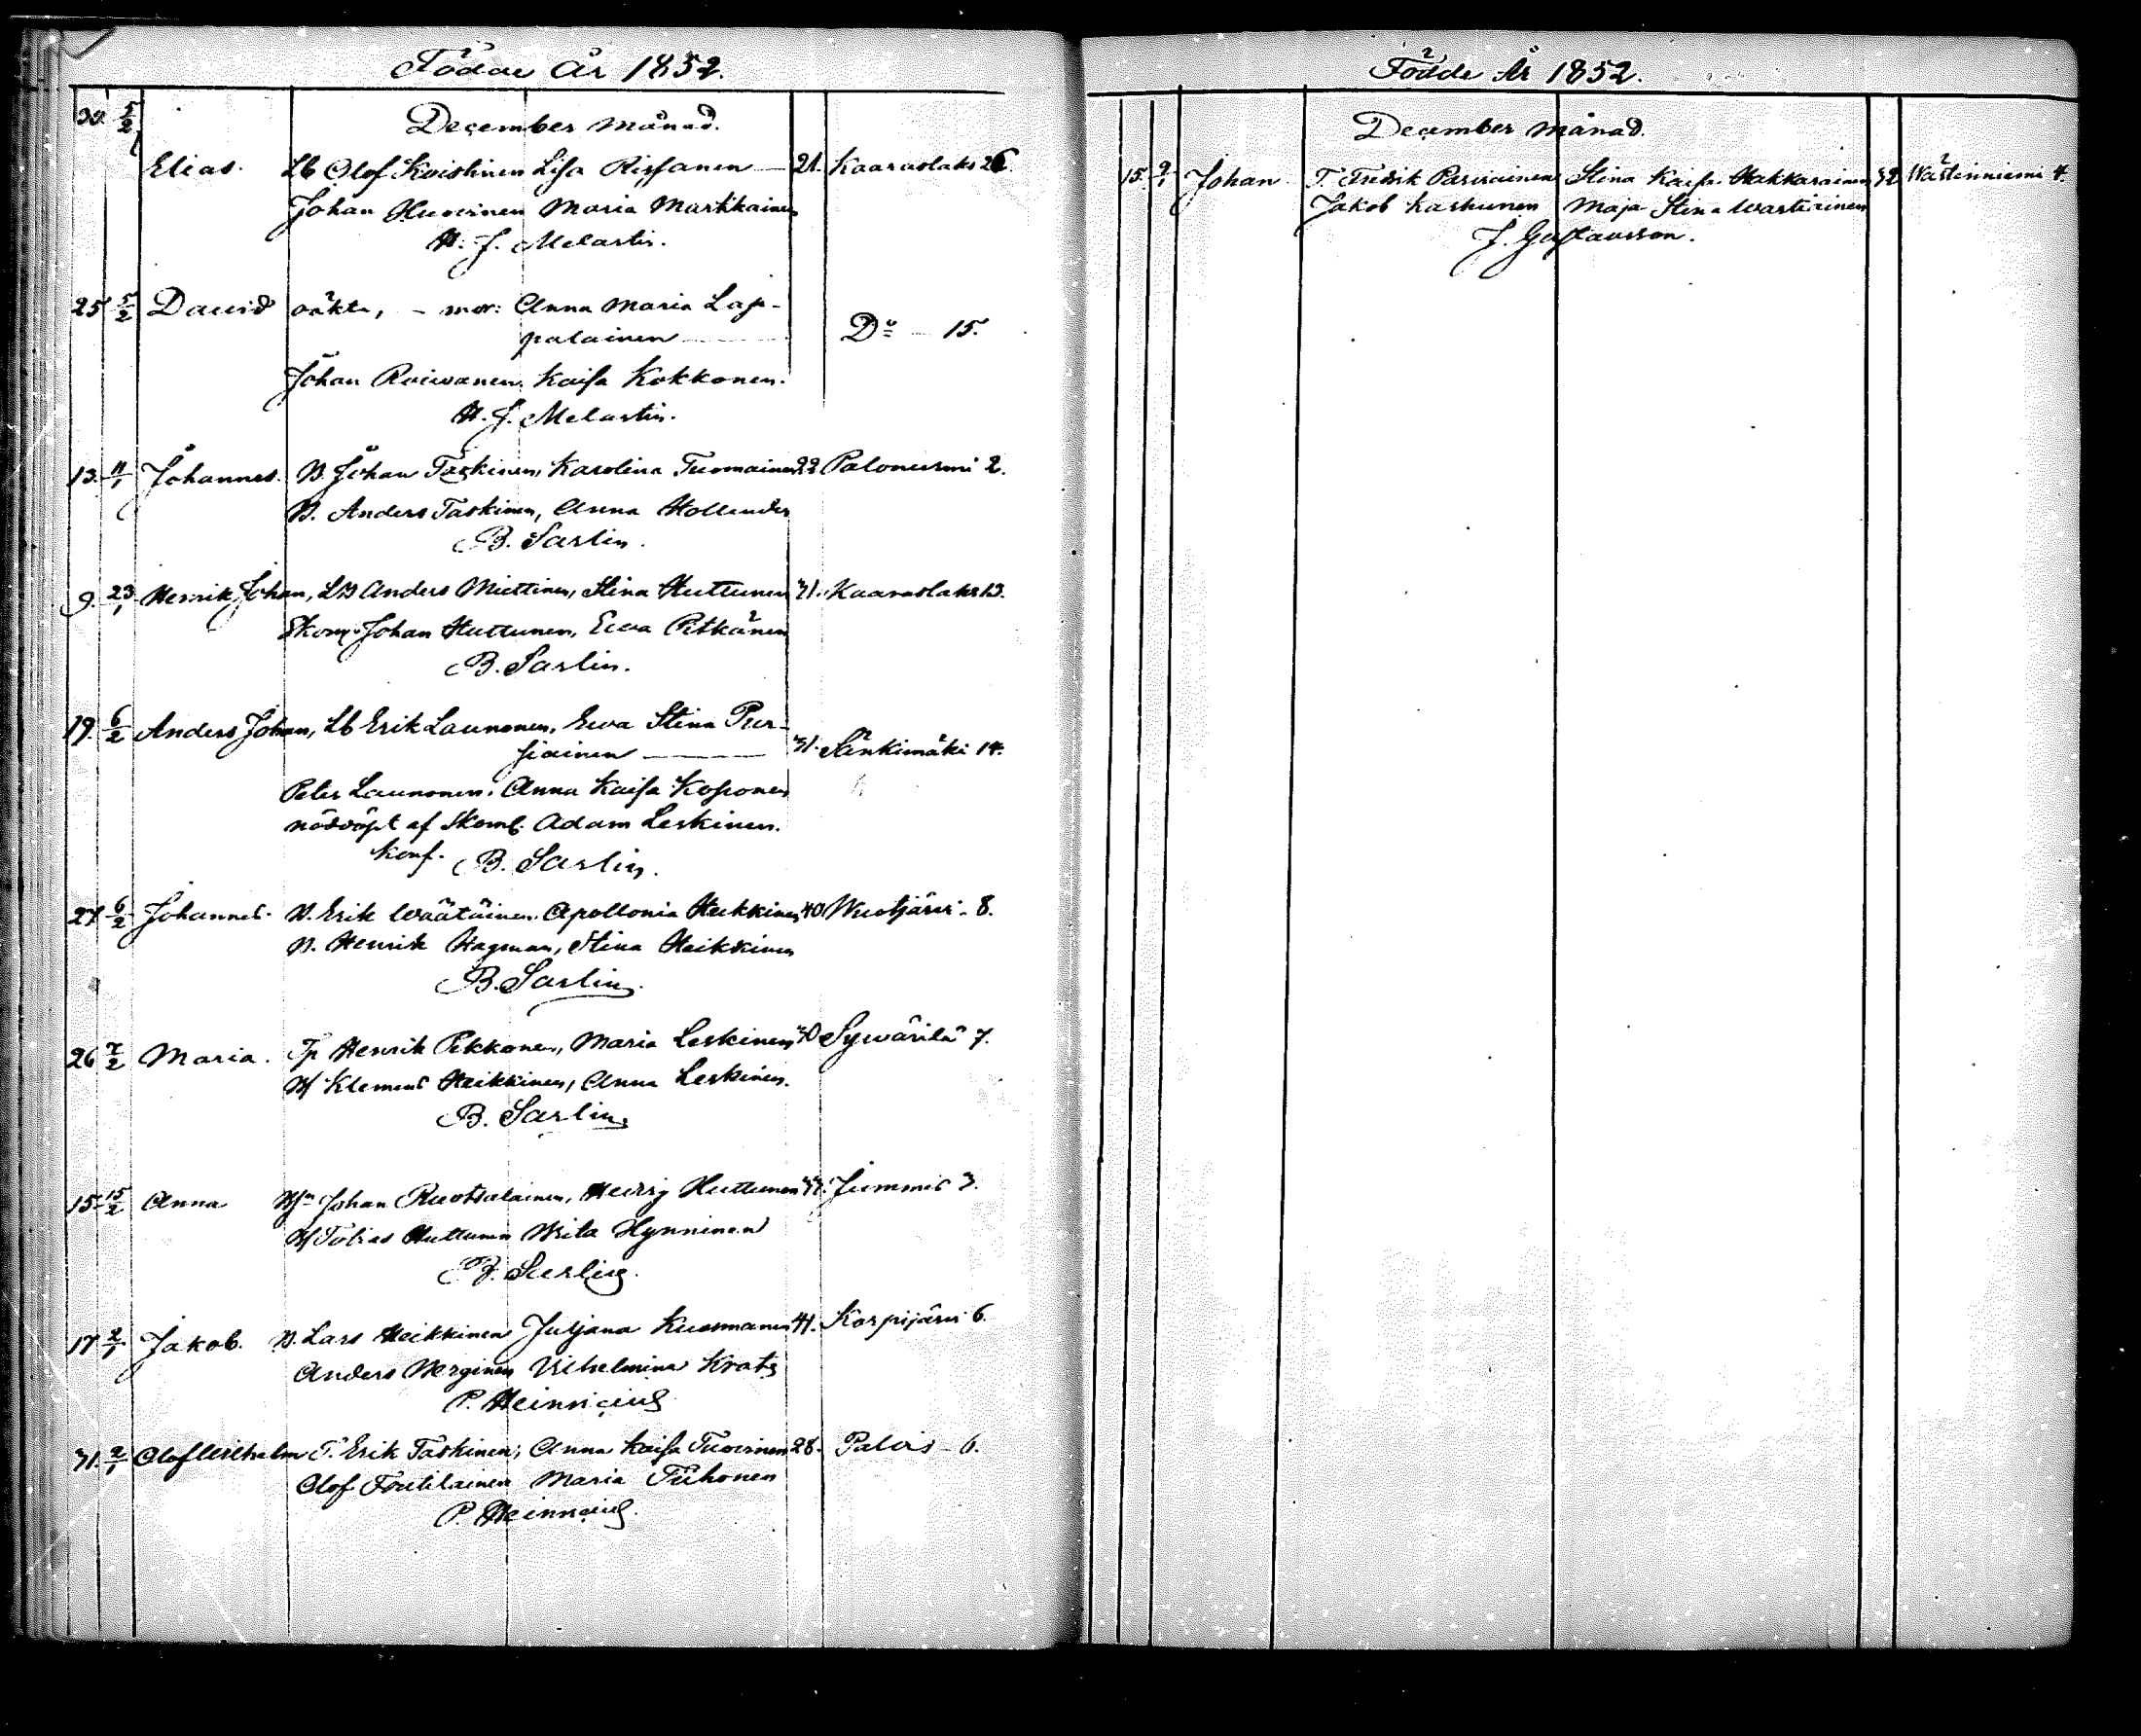 Födde År 1852.
December månad.
30. 5/2 Elias. Lb Olof Koistinen Lisa Rissanen — 21. Kaaraslaks 26
Johan Huovinen Maria Markkainen
H. J. Melartin.
25 5/2 David oäkta, – mor: Anna Maria Lap-
palainen — Do — 15.
Johan Roiwanen, Kaisa Kokkonen.
H. J. Melartin.
13. 11/1 Johannes. B. Johan Taskinen, Karolina Tuomainen 22 Palonurmi 2.
B. Anders Taskinen, Anna Hollender
B. Sarlin.
9. 23/1 Henrik Johan, LB Anders Miettinen, Stina Huttunen 31. Kaaraslaks 13.
Skom. Johan Huttunen, Ewa Pitkänen
B. Sarlin.
19. 6/2 Anders Johan, Lb Erik Launonen, Ewa Stina Pur-
siainen — 31. Sänkimäki 14.
Peter Launonen. Anna Kaisa Koponen
nöddöpt af Skom. Adam Leskinen.
Konf. B. Sarlin.
27 6/2 Johannes. B. Erik Wäätäinen. Apollonia Heikkinen 40 Wuotjärvi – 8.
B. Henrik Hagman, Stina Heikkinen
B. Sarlin.
26 7/2 Maria. Tp Henrik Pekkonen, Maria Leskinen 30 Sywärilä 7.
Klemens Heikkinen, Anna Leskinen.
B. Sarlin.
15. 15/2 Anna Johan Ruotsalainen, Hedvig Huttunen 33. Jummis 3.
Tobias Huttunen Brita Hynninen
B. Sarlin.
17 2/1 Jakob. B. Lars Heikkinen Juljana Kuosmanen 41. Korpijärvi 6.
Anders Werginen Vilhelmina Kratz
P. Heinricius
31. 2/1 Olof Wilhelm T. Erik Taskinen, Anna Kaisa Tuovinen 28. Palois – 6.
Olof Toutilainen Maria Tiihonen
P. Heinricius
Födde År 1852.
December månad.
15. 9/1 Johan. T. Fredrik Parviainen Stina Kaisa Hakkarainen 32 Wästinniemi 4.
Jakob Kaskunen Maja Stina Wartiainen
J. Gustavsson.